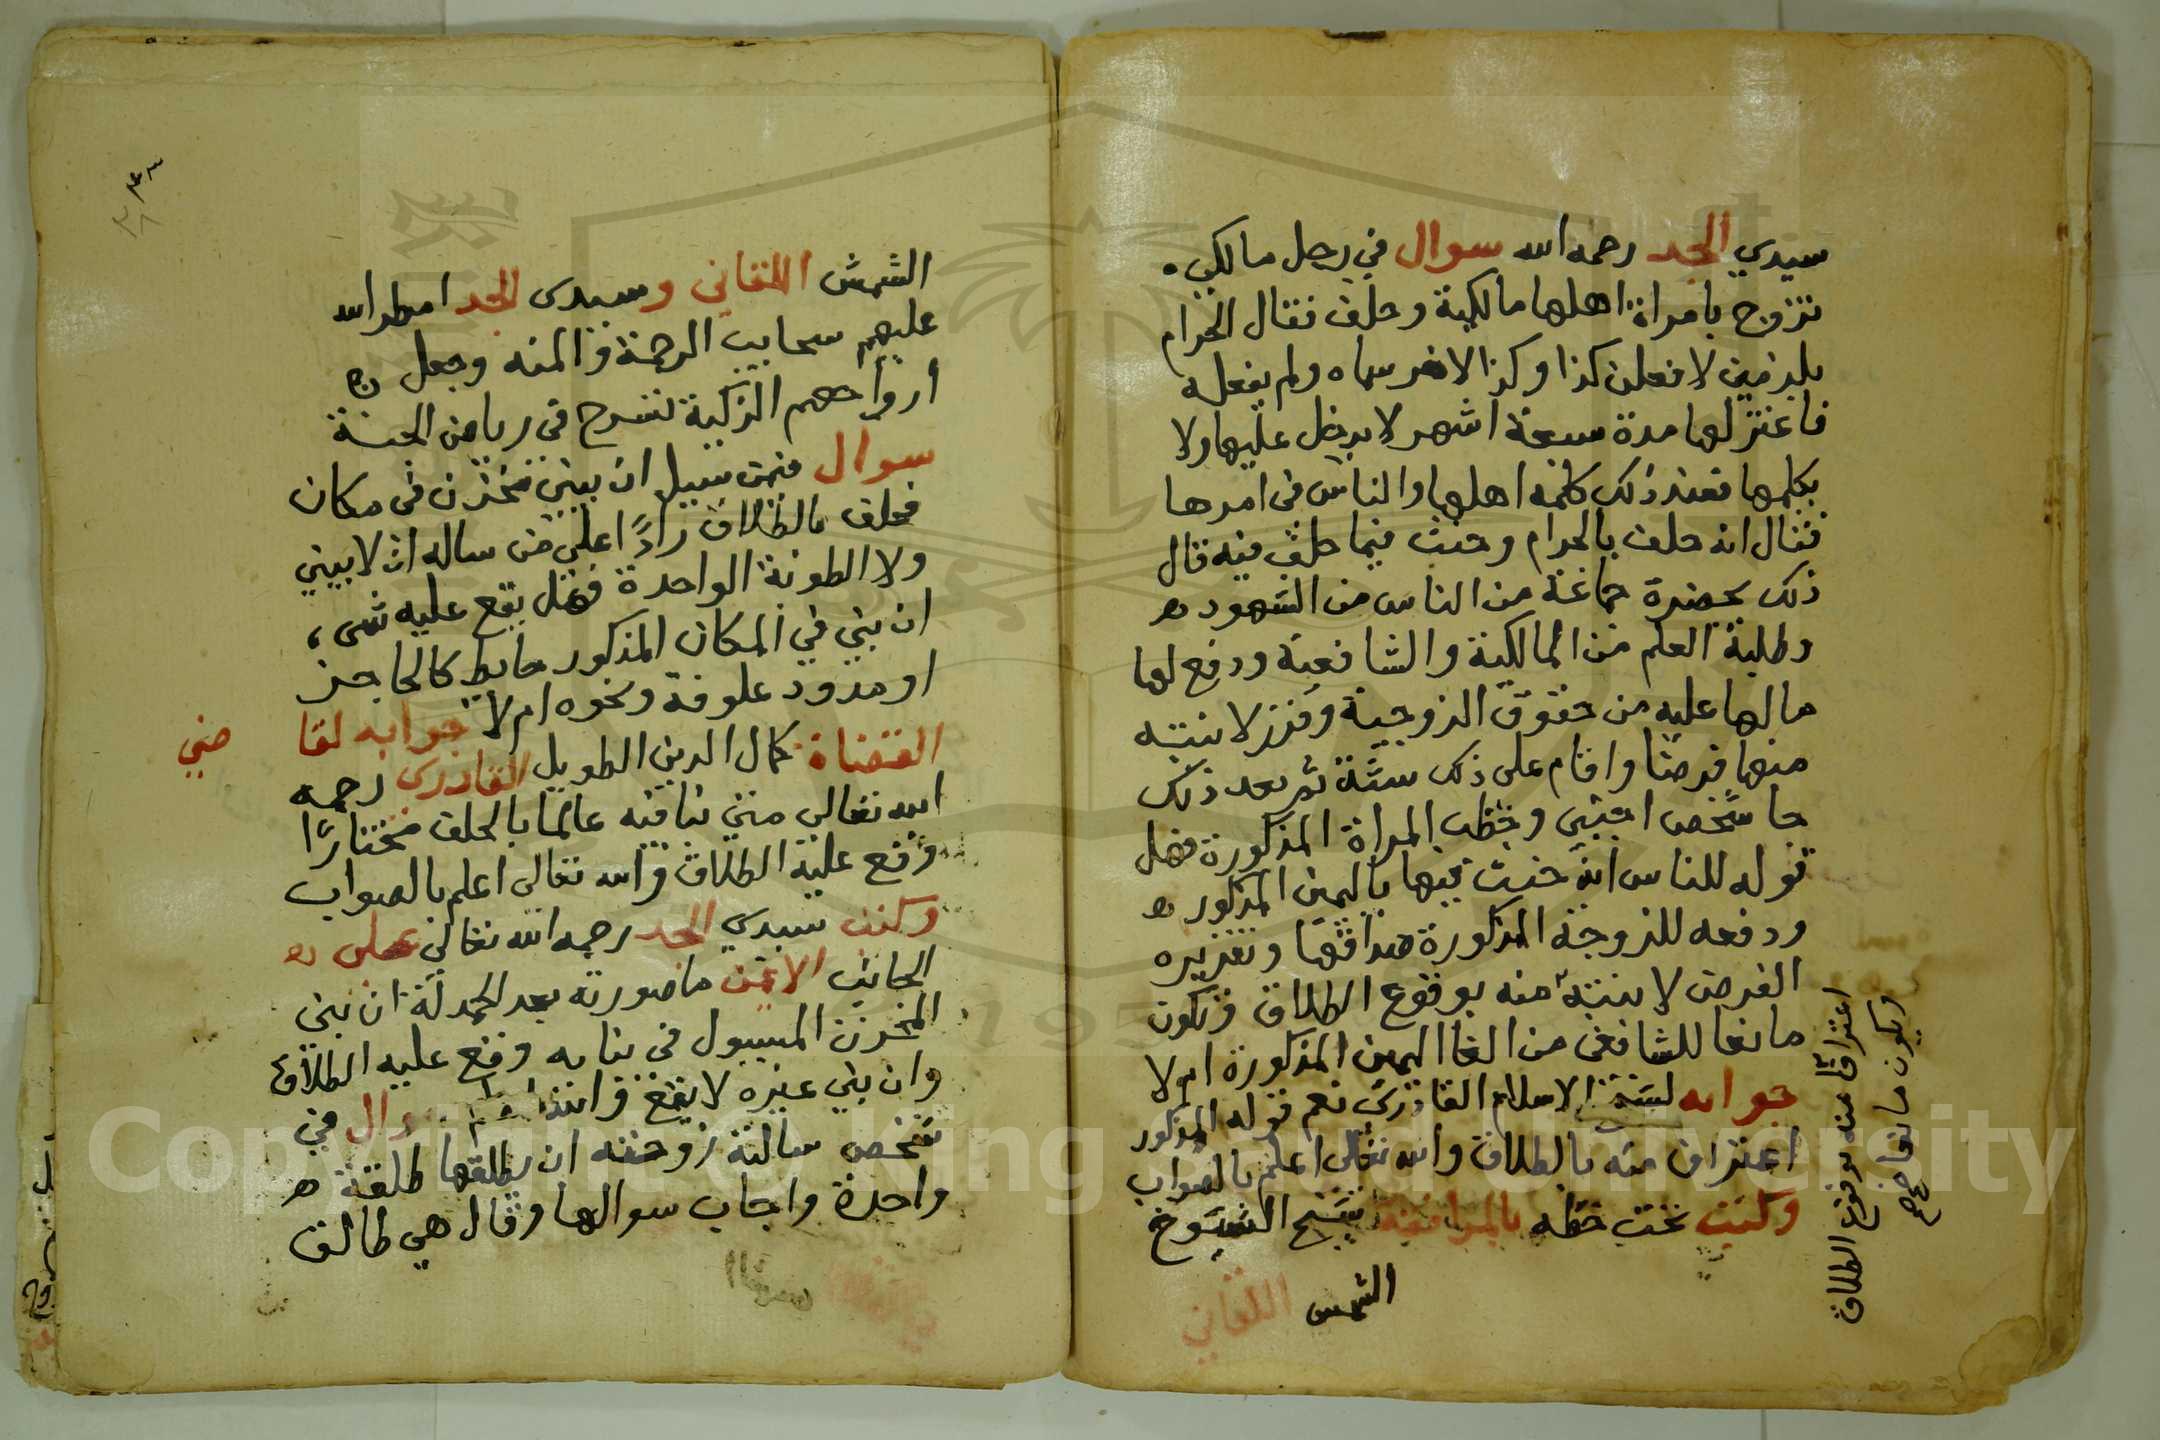 سيدي الجد رحمه الله سوال في رجل مالكي
تزوج بامراة اهلها مالكية وحلف فقال الحرام
يلزمني لافعلن كذا وكذا لامر سماه ولم يفعله
فاعتزلها مدة سبعة اشهر لا يدخل عليها ولا
يكلمها فعند ذلك كلمه اهلها والناس في امرها
فقال انه حلف بالحرام وحنث فيما حلف فيه قال
ذلك بحضرة جماعة من الناس من الشهود
وطلبة العلم من المالكية والشافعية ودفع لها
مالها عليه من حقوق الزوجية وقرر لابنته
منها فرضا واقام على ذلك سنة ثم بعد ذلك
جا شخص اجنبي وخطب المراة المذكورة فهل
قوله للناس انه حنث فيها باليمين المذكور
ودفعه للزوجة المذكورة صداقها وتقريره
الفرض لابنته منه بوقوع الطلاق وتكون
مانعا للشافعي من الغا اليمين المذكورة ام لا
جوابه لشيخ الاسلام القادري نعم قوله المذكور
اعتراف منه بالطلاق والله تعالى اعلم بالصواب
وكتب تحت خطه بالموافقة شيخ الشيوخ
الشمس اللقاني
اعترافا منه بوقوع الطلاق
ويكون مانعا صح
الشمس اللقاني وسيدى الجد امطر الله
عليهم سحايب الرحمة والمنه وجعل
ارواحهم الزكية تسرح في رياض الجنة
سوال فيمن سيل ان يبني مخزن في مكان
فحلف بالطلاق رادًا على من ساله ان لا يبني
ولا الطوبة الواحدة فهل يقع عليه شى
ان بني في المكان المذكور حايط كالحاجز
او مدود علوفة ونحوه ام لا جوابه لقا
ضي
القضاة كمال الدين الطويل القادرى رحمه
الله تعالى متى بنا فيه عالما بالحلف مختارًا
وقع عليه الطلاق والله تعالى اعلم بالصواب
وكتب سيدي الجد رحمه الله تعالى على
الجانب الايمن ما صورته بعد الحمدلة ان بني
المخزن المسيول في بنايه وقع عليه الطلاق
وان بني غيره لا يقع والله اعلم سوال في
شخص سالته زوجته ان يطلقها طلقة
واحدة واجاب سوالها وقال هي طالق
Copyright © King Saud University